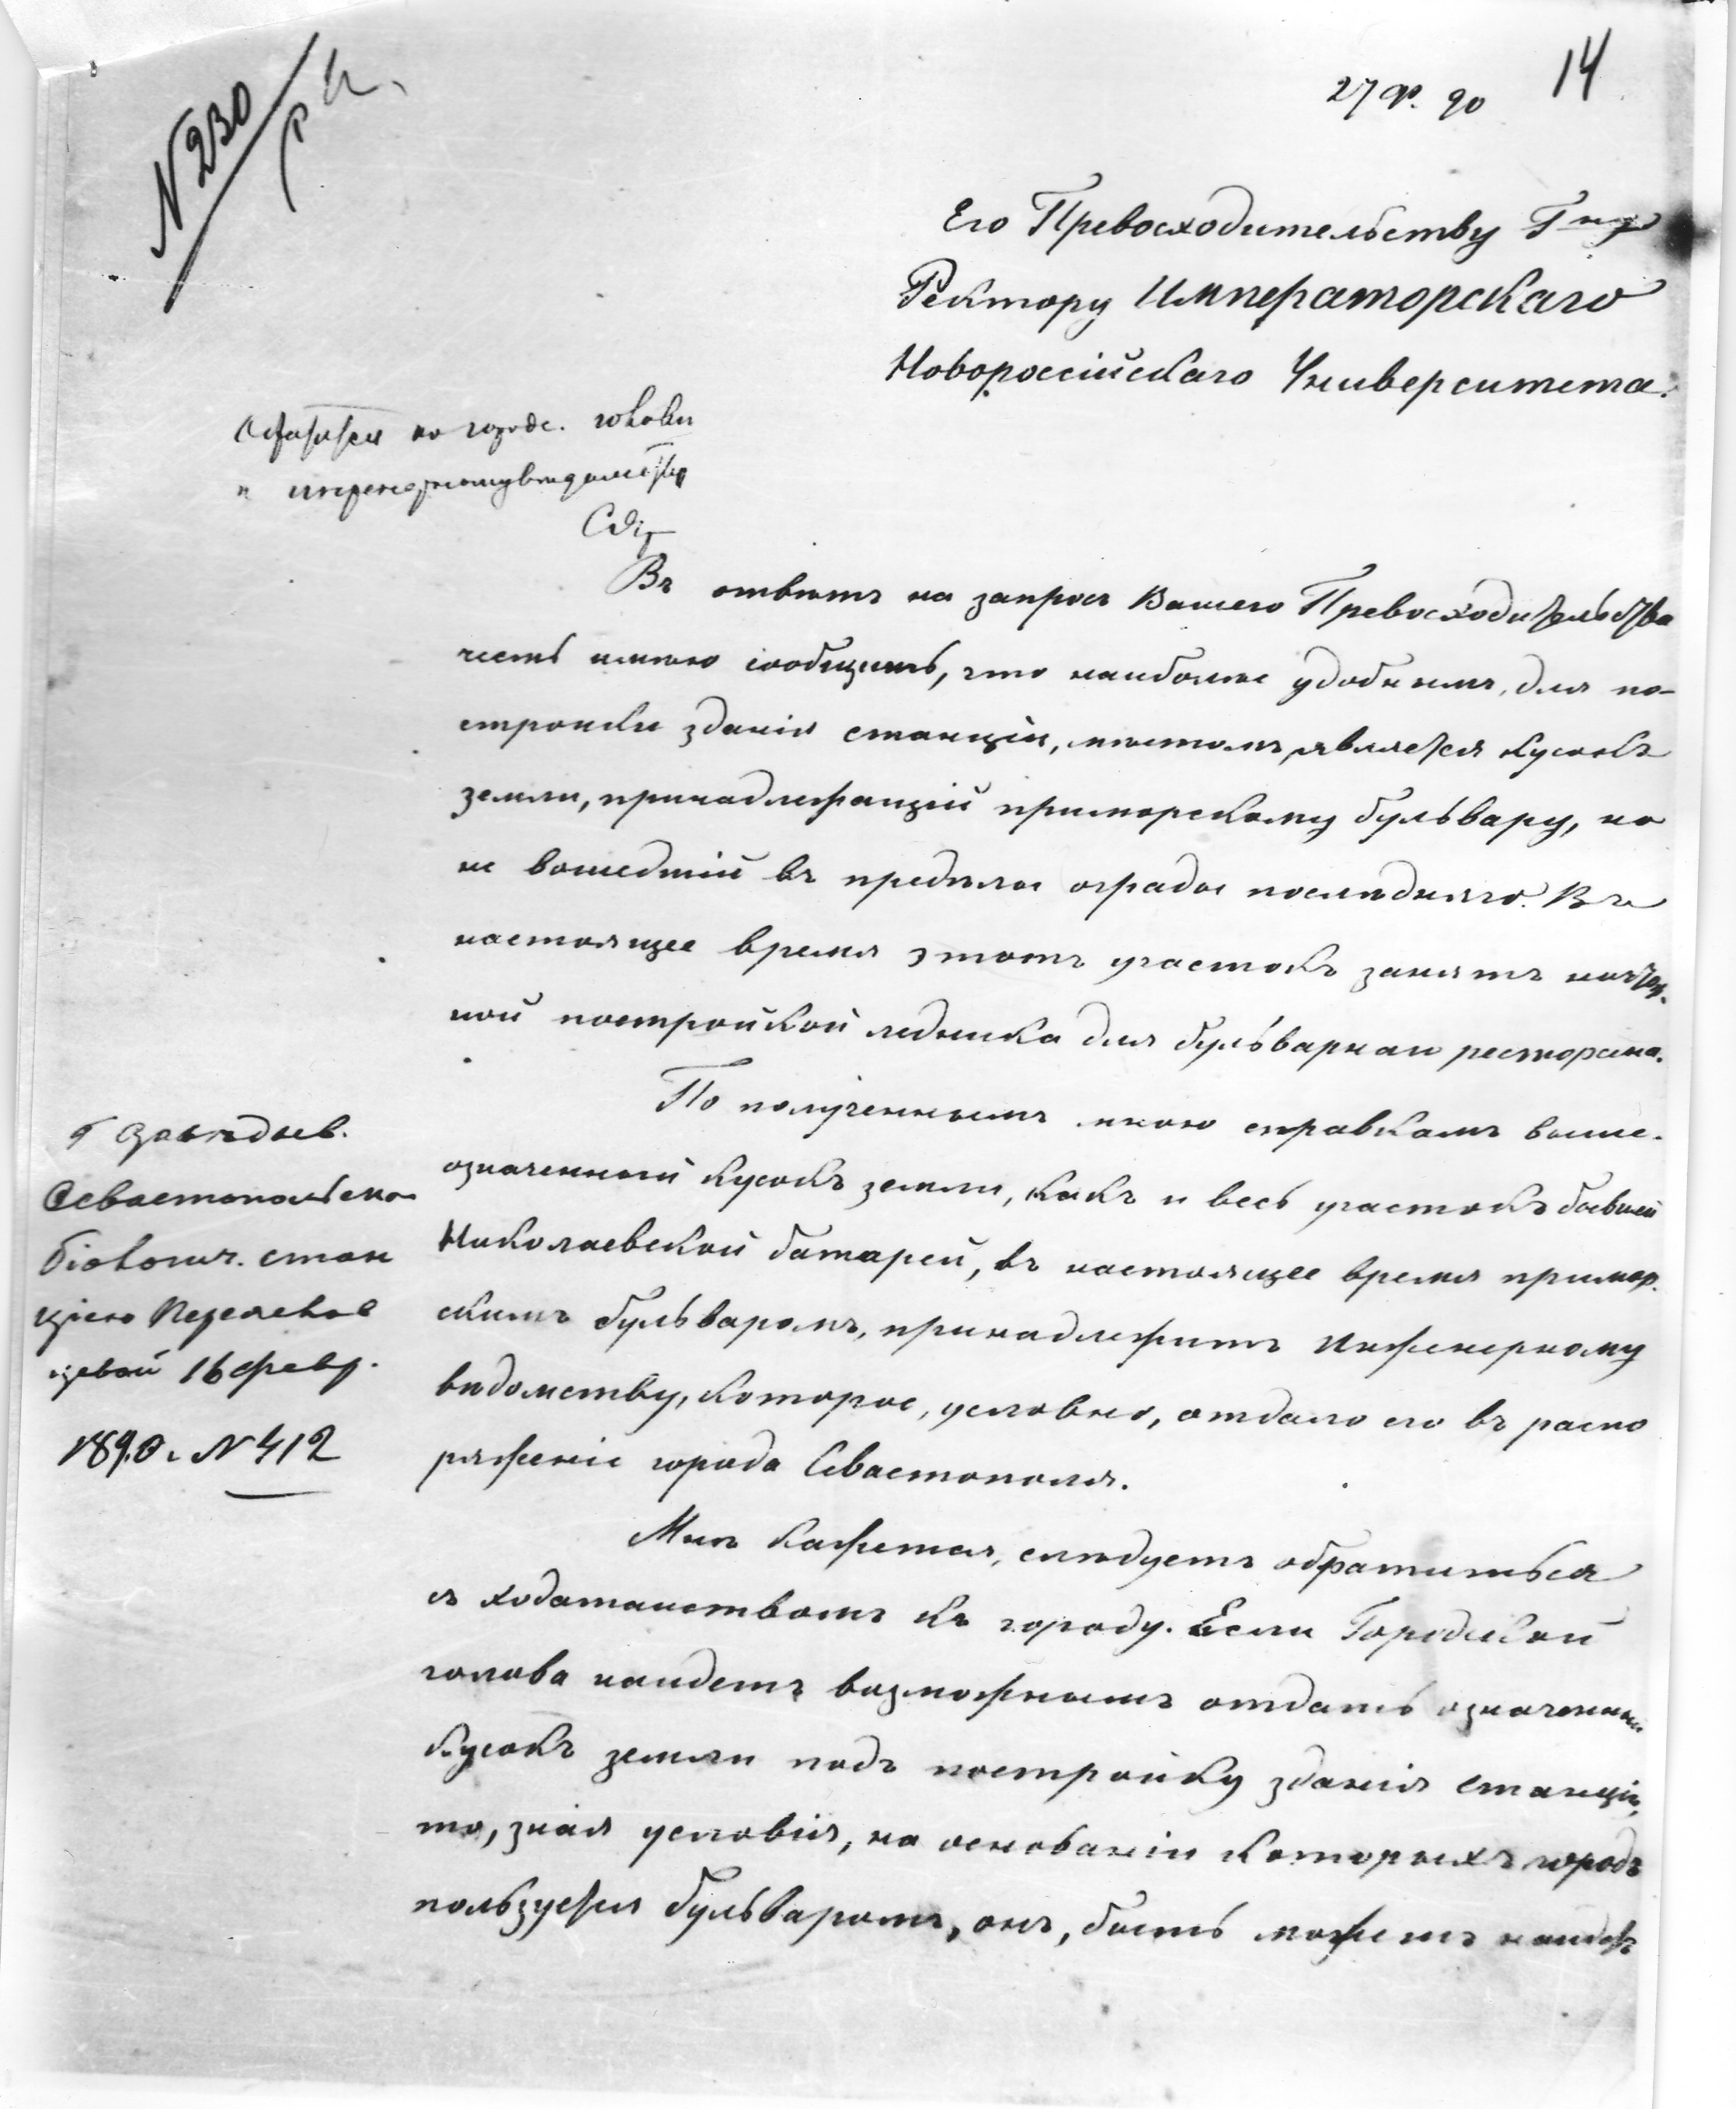 14
27 Ф. 90
N 230
Его Превосходительству Г-ну
Ректору Императорскаго
Новороссійскаго Университета.
по городс. головы
и инженерному
Въ отвѣтъ на запросъ Вашего Превосходительства
честь имѣю сообщить, что наиболѣе удобнымъ, для по-
стройки зданія станціи, мѣстомъ, является кусокъ
земли, принадлежащій приморскому бульвару, но
не вошедшій въ предѣлы ограды послѣдняго. Въ
настоящее время этотъ участокъ занятъ
ной постройкой ледника для бульварнаго ресторана.
По полученнымъ мною справкамъ выше-
означенный кусокъ земли, какъ и весь участокъ бывшей
Николаевской батареи, въ настоящее время примор-
скимъ бульваромъ, принадлежитъ Инженерному
вѣдомству, которое, условно, отдало его въ распо
ряженіе города Севастополя.
Мнѣ кажется, слѣдуетъ обратиться
съ ходатайствомъ къ городу. Если Городской
голова найдетъ возможнымъ отдать означенный
кусокъ земли подъ постройку зданія станціи,
то, зная условія, на основаніи которыхъ городъ
пользуется бульваромъ, онъ, быть можетъ найдетъ
Г Завѣдыв.
Севастопольско
біологич. стан
ціею Переяслав
цевой 16 февр.
1890 г. N 412